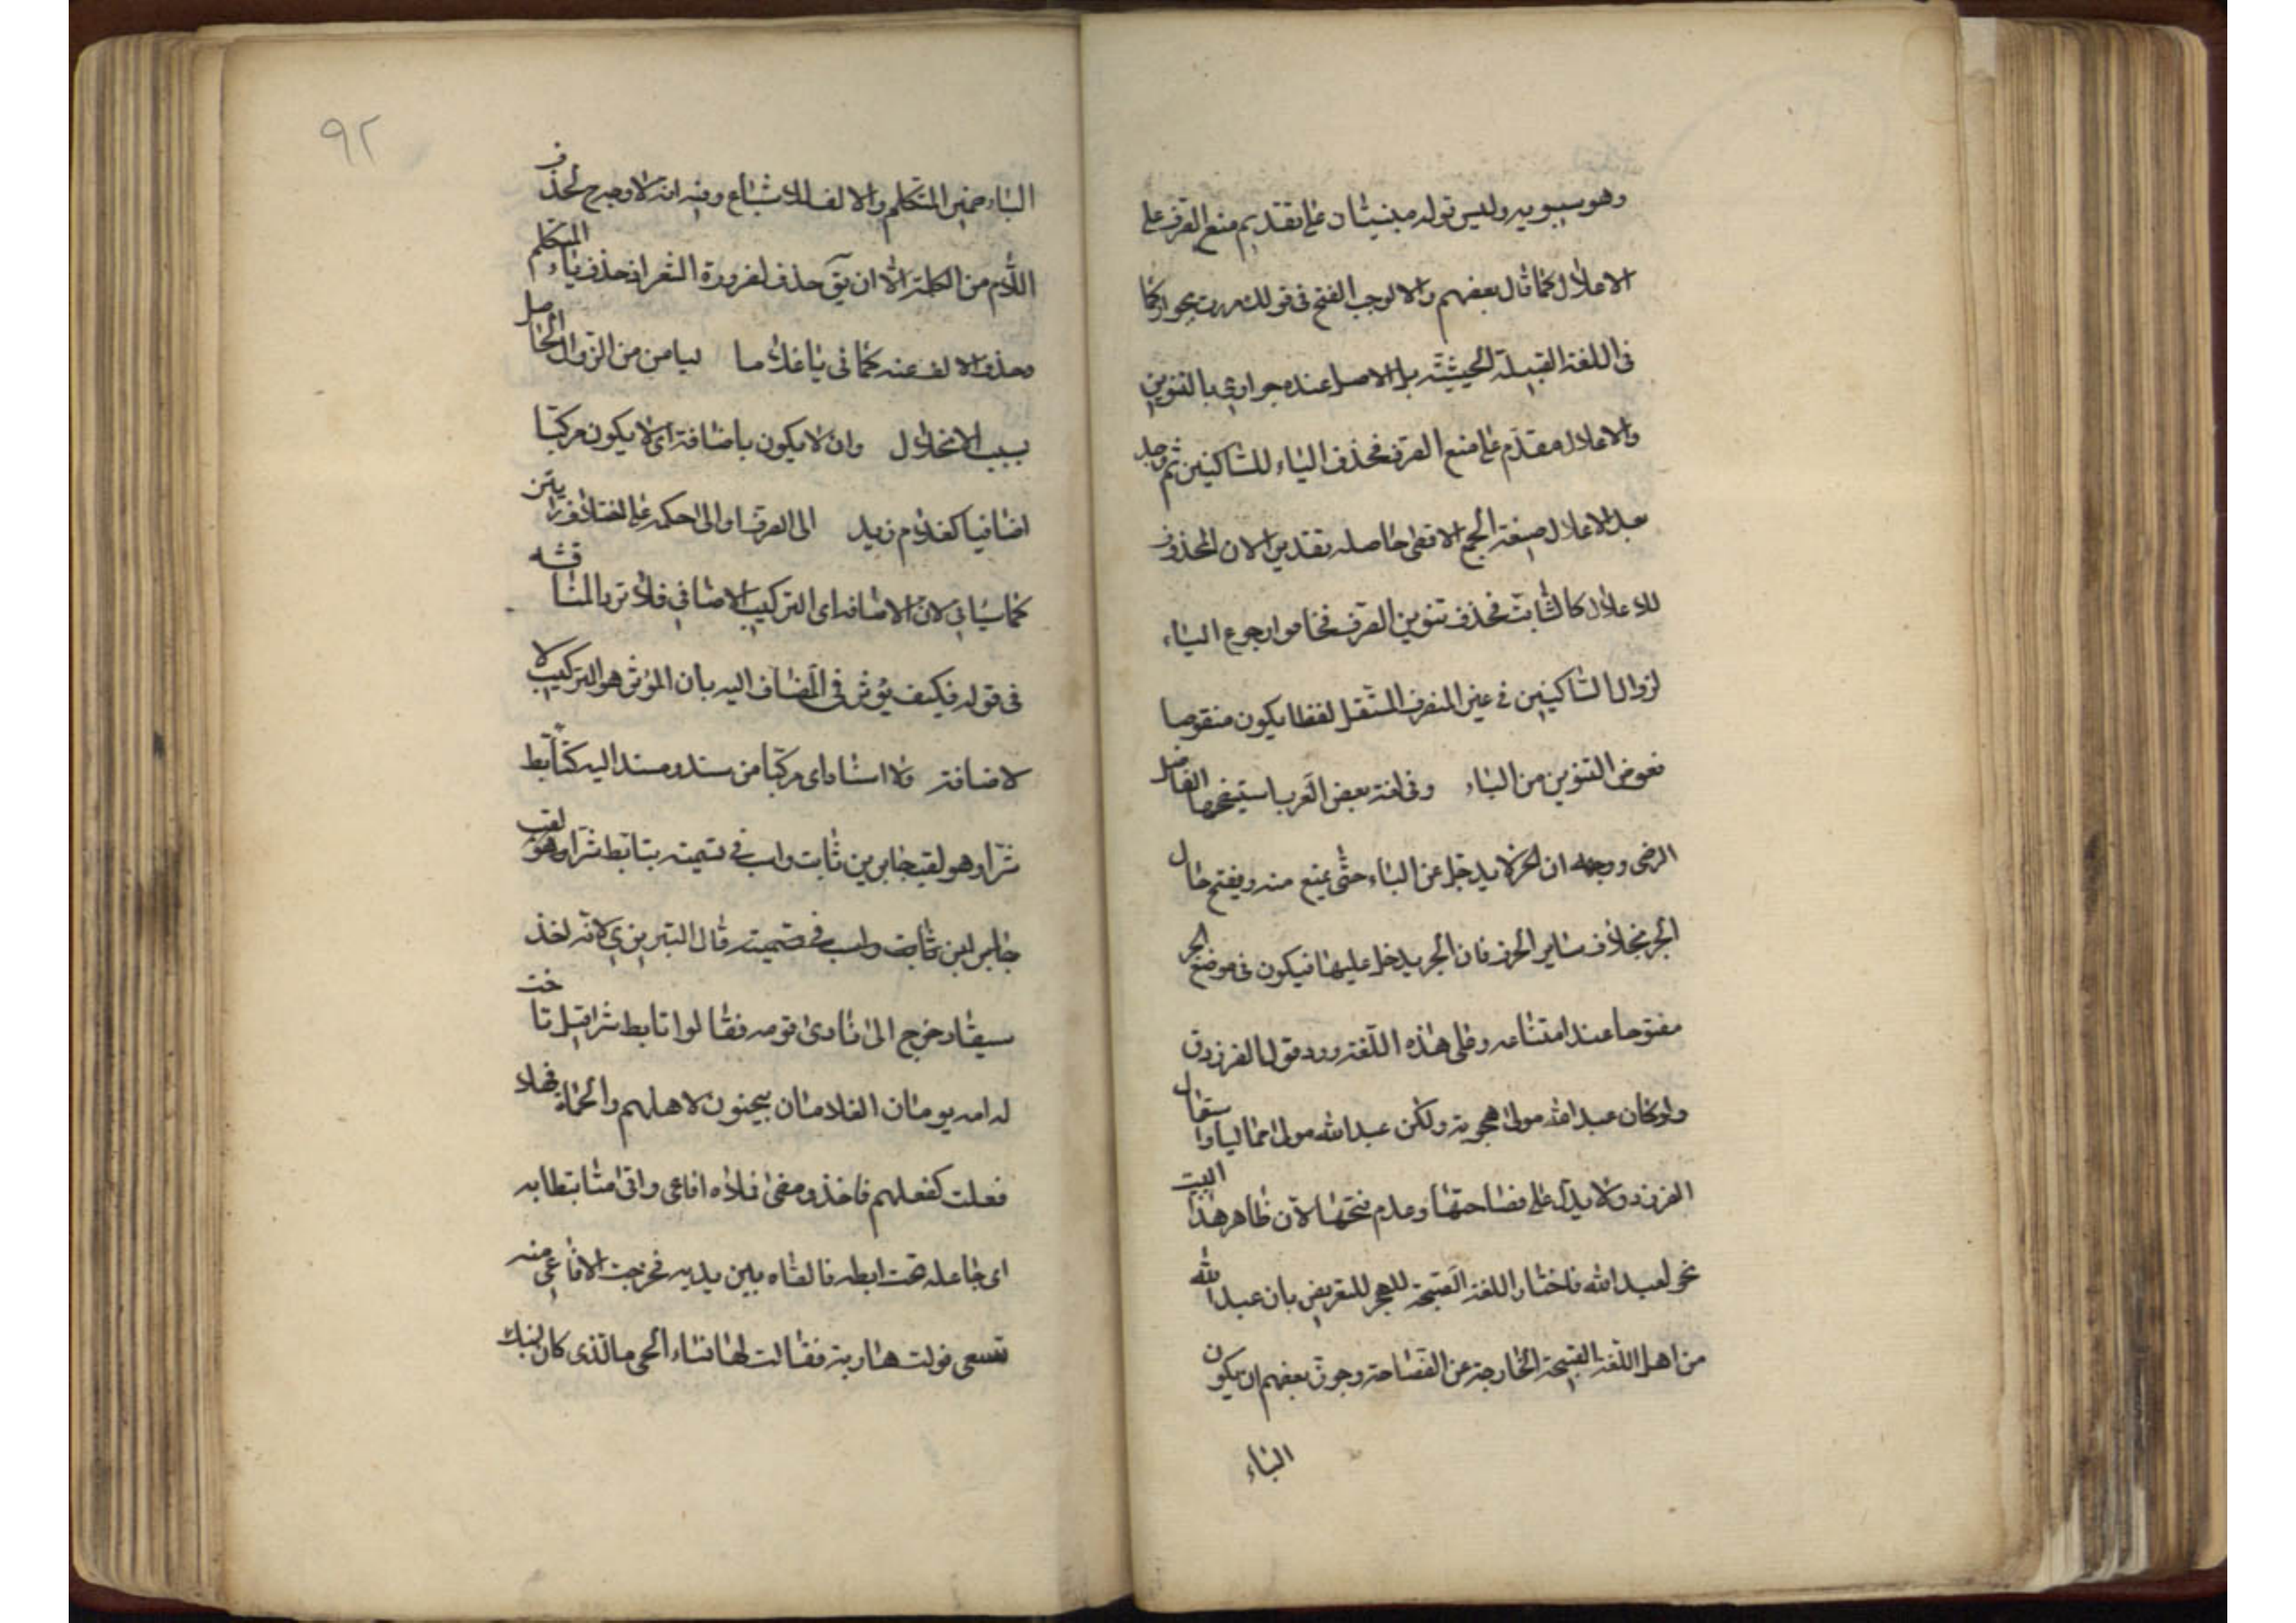 وهو سيبويه وليس قوله مبنيتان على تقديم منع الصرف على
الاعلال كما قال بعضهم والا لوجب الفتح في قولك مررت بجواركما
في اللغة القبيلة الخبيثة بل الاصل عنده جواري بالتنوين
والاعلال مقدم على منع الصرف فحذف الياء للساكنين ثم وجد
بعد الاعلال صيغة الجمع الاقصى حاصله تقديرا لان المحذوف
للاعلال كالثابت فحذف تنوين الصرف فخافوا رجوع الياء
لزوال الساكنين في غير المنصرف المستثقل لفظا يكون منقوصا
فعوض التنوين من الياء وفي لغة بعض العرب استيضحها الفاضل
الرضى ووجهه ان الجر لا يدخل عن الياء حتى يمنع منه ويفتح حال
الجر بخلاف ساير الحرف فان الجر يدخل عليها فيكون في موضع الجر
مفتوحا عند امتناعه وعلى هذه اللغة ورد قول الفرزدق
ولو كان عبد الله مولى هجوته ولكن عبد الله مولى مواليا واستقال
الفرزدق لا يدل على فصاحتها وعدم فتحها لان ظاهر هذا البيت
هجو لعبد الله فاختار اللغة القبيحة للهجر للتعريض بان عبد الله
من اهل اللغة القبيحة الخارجة عن الفصاحة وجوز بعضهم ان يكون
الياء
٩٢
الياء ضمير المتكلم والالف للاشباع وفيه انه لا وجه لحذف
اللام من الكلمة الا ان يق حذف لضرورة الشعر او حذف ياء المتكلم
وحذف الالف عنه كما في يا غلاما ليا من من الزوال الحاصل
بسبب الانخلال وان لا يكون باضافة اى لا يكون مركبا
اضافيا كغلام زيد الى الصرف او الى احكمه على اختلاف رايين
كما سياتي لان الاضافه اى التركيب الاضافي فلا ترد المناقشه
في قوله فكيف يؤثر في المضاف اليه بان المؤثر هو التركيب لا
لاضافة ولا اسناد اى مركبا من سند ومسند اليه كتابط
شرا وهو لقب جابر بن ثابت واب في تسميته بتابط شرا وهو لقب
جابر ابن ثابت واب في تسميته قال التبريزي لانه اخذ
سيفا وخرج الى نادى قومه فقالوا تابط شرا قيل تاخت
له امه يوما ان الغلامان يجنون لاهلهم والكماة فهلا
فعلت كفعلهم فاخذ ومضى فلاه افاعى واتى متابطا به
اى جاعله تحت ابطه فالقاه بين يديه فخرجت الافاعى منه
تسعى فولت هاربة فقالت لها نساء الحى ما الذى كان ابنك